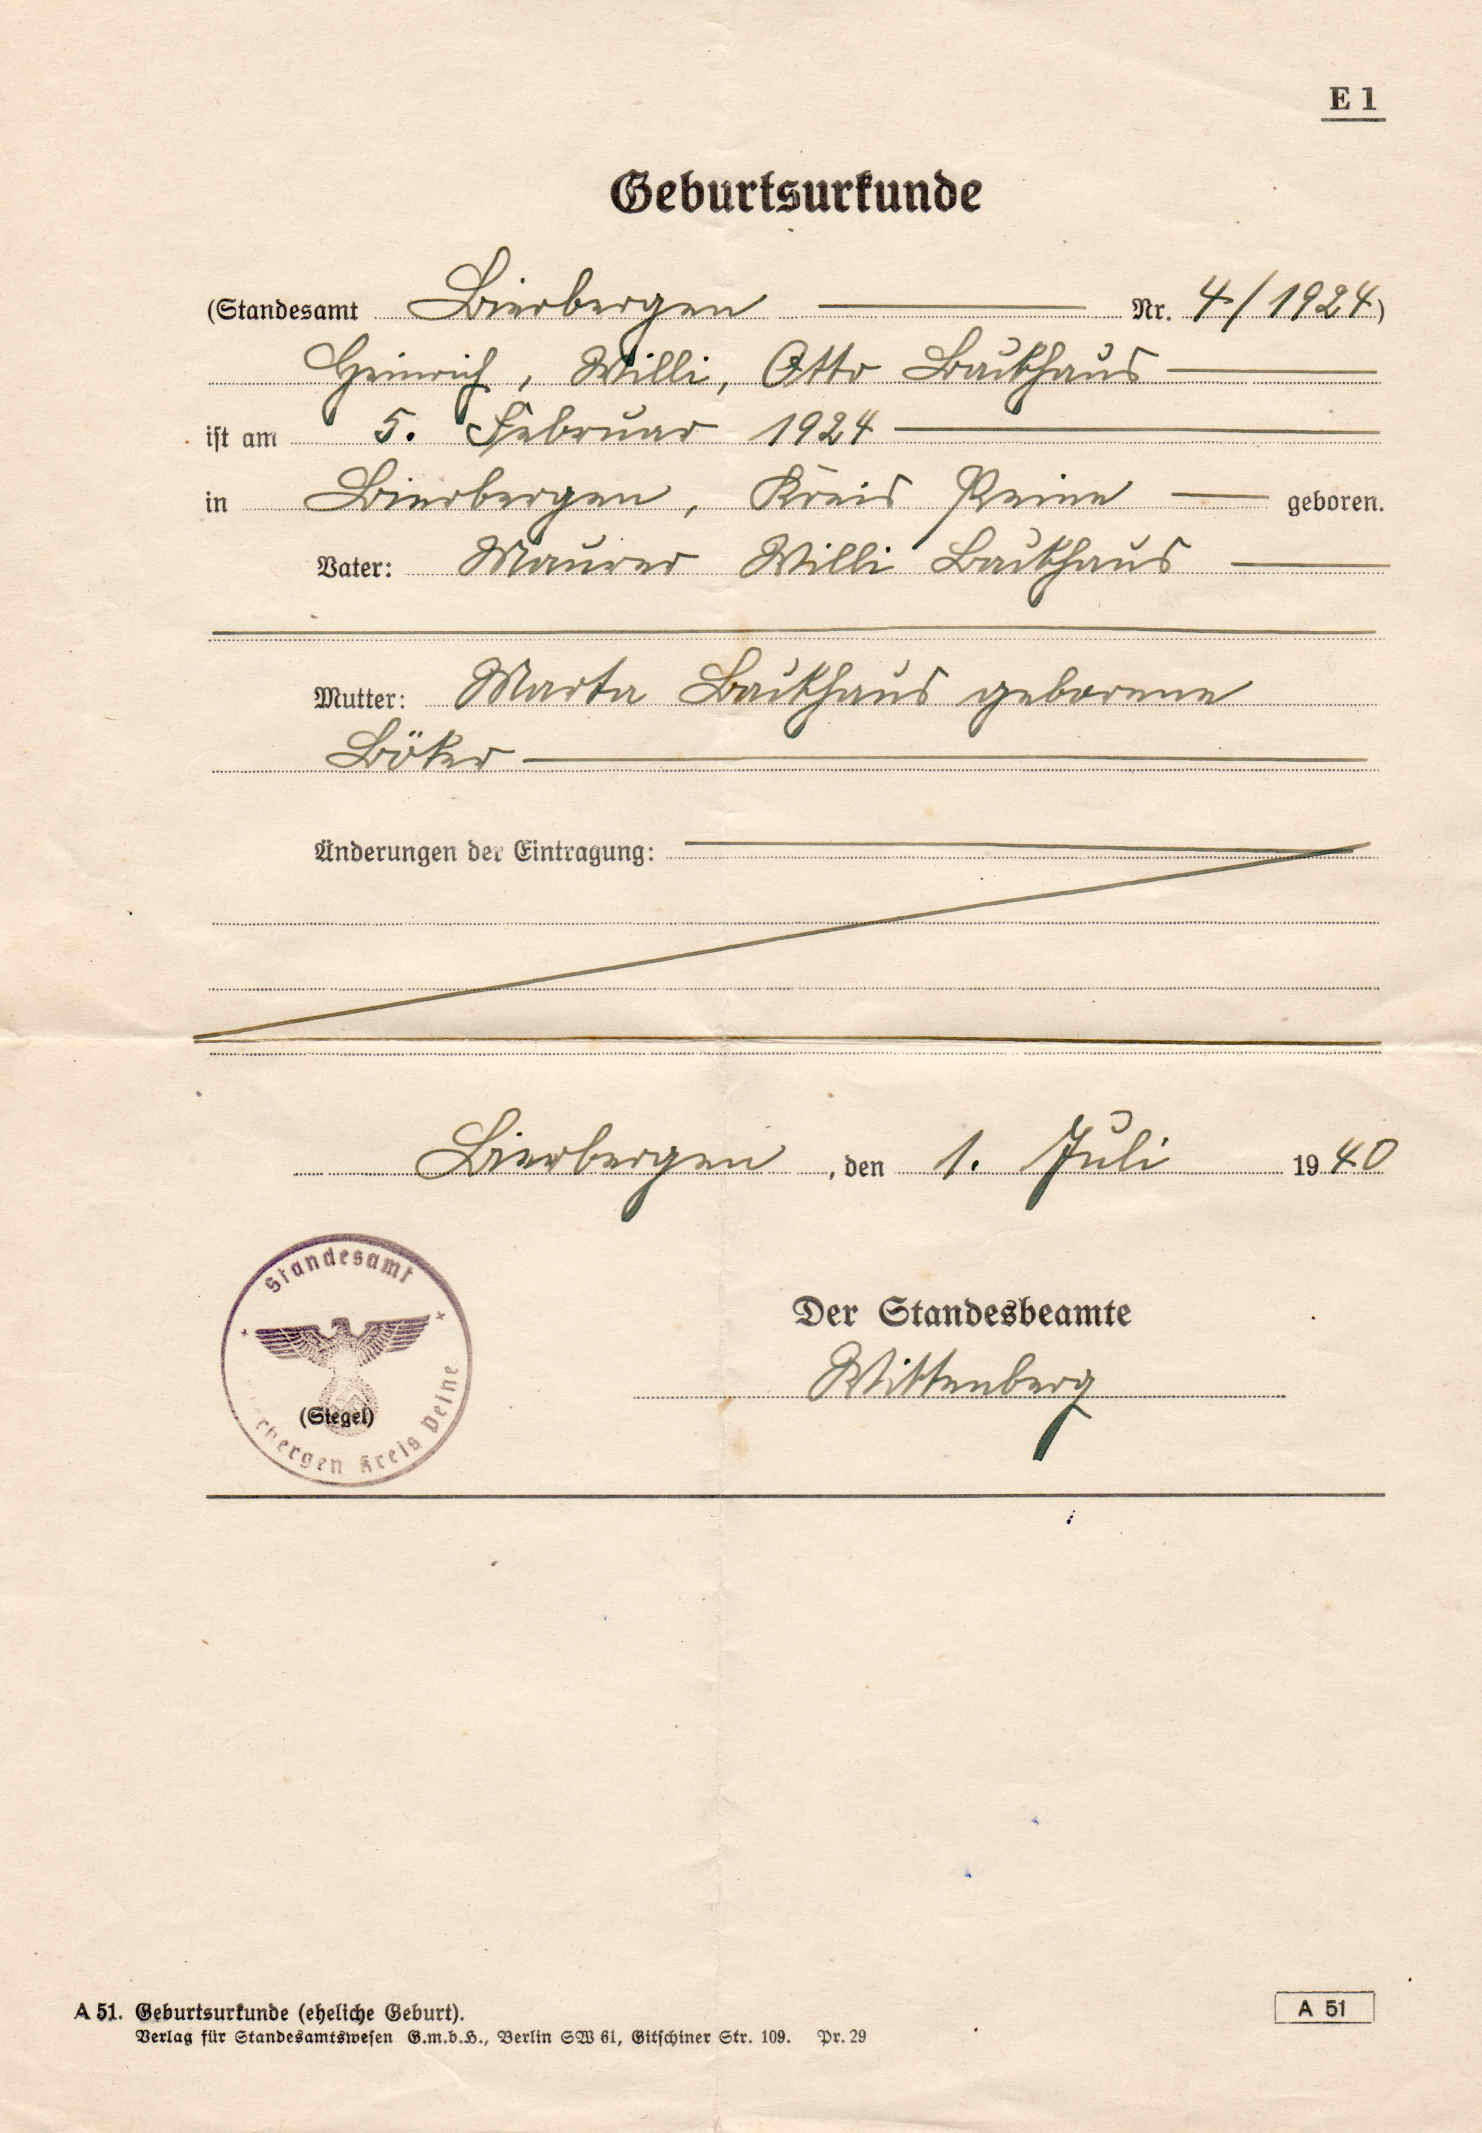 E 1
Geburtsurkunde
(Standesamt Bierbergen Nr. 4/1924)
Heinrich, Willi, Otto Backhaus
ist am 5. Februar 1924
in Bierbergen, Kreis Peine geboren.
Vater: Maurer Willi Backhaus
Mutter: Marta Backhaus geborene
Böker
Änderungen der Eintragung:
Bierbergen, den 1. Juli 1940
Standesamt
Der Standesbeamte
Wittenberg
(Siegel)
erbergen Kreis Peine
A 51. Geburtsurkunde (eheliche Geburt).
A 51
Verlag für Standesamtswesen G.m.b.H., Berlin SW 61, Gitschiner Str. 109. Pr. 29